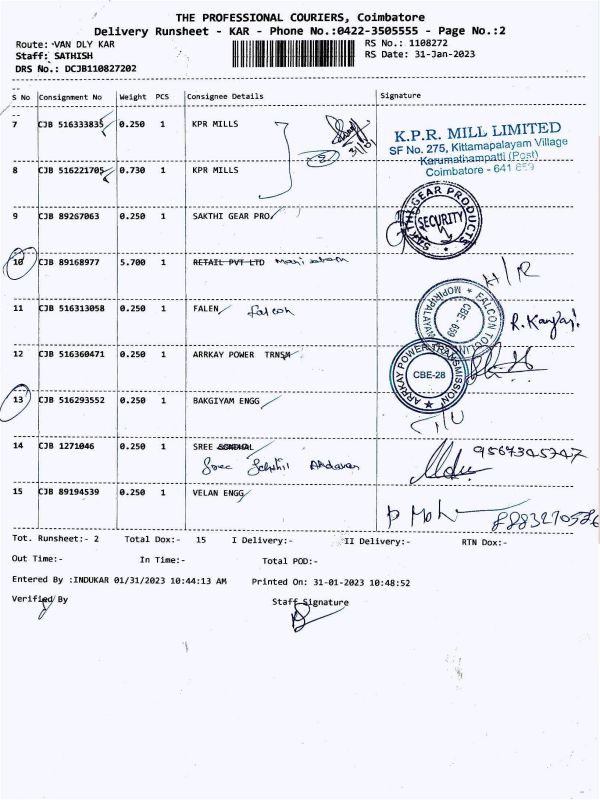 THE PROFESSIONAL COURIERS, Coimbatore
Delivery Runsheet - KAR - Phone No.:0422-3505555 - Page No.:2
Route: VAN DLY KAR
RS No.: 1108272
Staff: SATHISH
RS Date: 31-Jan-2023
DRS No.: DCJB110827202
S No Consignment No Weight PCS Consignee Details Signature
7 CJB 516333835 0.250 1 KPR MILLS
31/01
K.P.R. MILL LIMITED
SF No. 275, Kittamapalayam Village
Karumathampatti (Post)
Coimbatore - 641 659
8 CJB 516221705 0.730 1 KPR MILLS
9 CJB 89267063 0.250 1 SAKTHI GEAR PRO
SAKTHI GEAR PRODUCTS
SECURITY
10 CJB 89168977 5.700 1 RETAIL PVT LTD
H/R
11 CJB 516313058 0.250 1 FALEN Falcon
FALCON TOOL
MOPIRIPALAYAM
CBE - 659
12 CJB 516360471 0.250 1 ARRKAY POWER TRNSM
ARRKAY POWER TRANSMISSION
CBE-28
13 CJB 516293552 0.250 1 BAKGIYAM ENGG
14 CJB 1271046 0.250 1 SREE
Sree
9567345747
15 CJB 89194539 0.250 1 VELAN ENGG
Tot. Runsheet:- 2 Total Dox:- 15 I Delivery:- II Delivery:- RTN Dox:-
Out Time:- In Time:- Total POD:-
Entered By :INDUKAR 01/31/2023 10:44:13 AM Printed On: 31-01-2023 10:48:52
Verified By Staff Signature